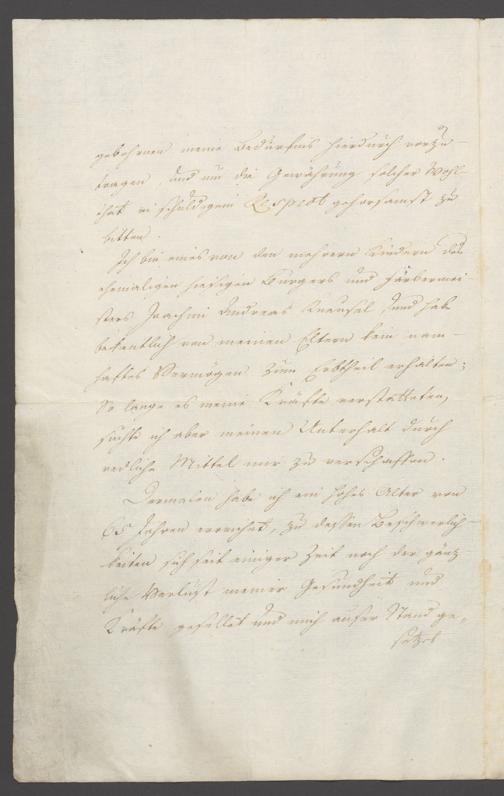 gebohrnen meine Bedürfnis hierdurch vorzu-
tragen, und um die Gewährung solcher Wohl-
that in schuldigem Respect gehorsamst zu
bitten.
Ich bin eines von den mehrern Kindern des
ehemaligen hiesigen Bürgers und Färbermei-
sters Joachim Andreas Knausel, und habe
bekentlich von meinen Eltern kein nam-
haftes Vermögen zum Erbtheil erhalten;
So lange es meine Kräfte verstatteten,
suchte ich aber meinen Unterhalt durch
redliche Mittel mir zu verschaffen.
Dermalen habe ich ein hohes Alter von
65 Jahren erreichet, zu dessen Beschwerlich-
keiten sich seit einiger Zeit noch der gänz
liche Verlust meiner Gesundheit und
Kräfte gesellet und mich auser Stand ge-
setzet